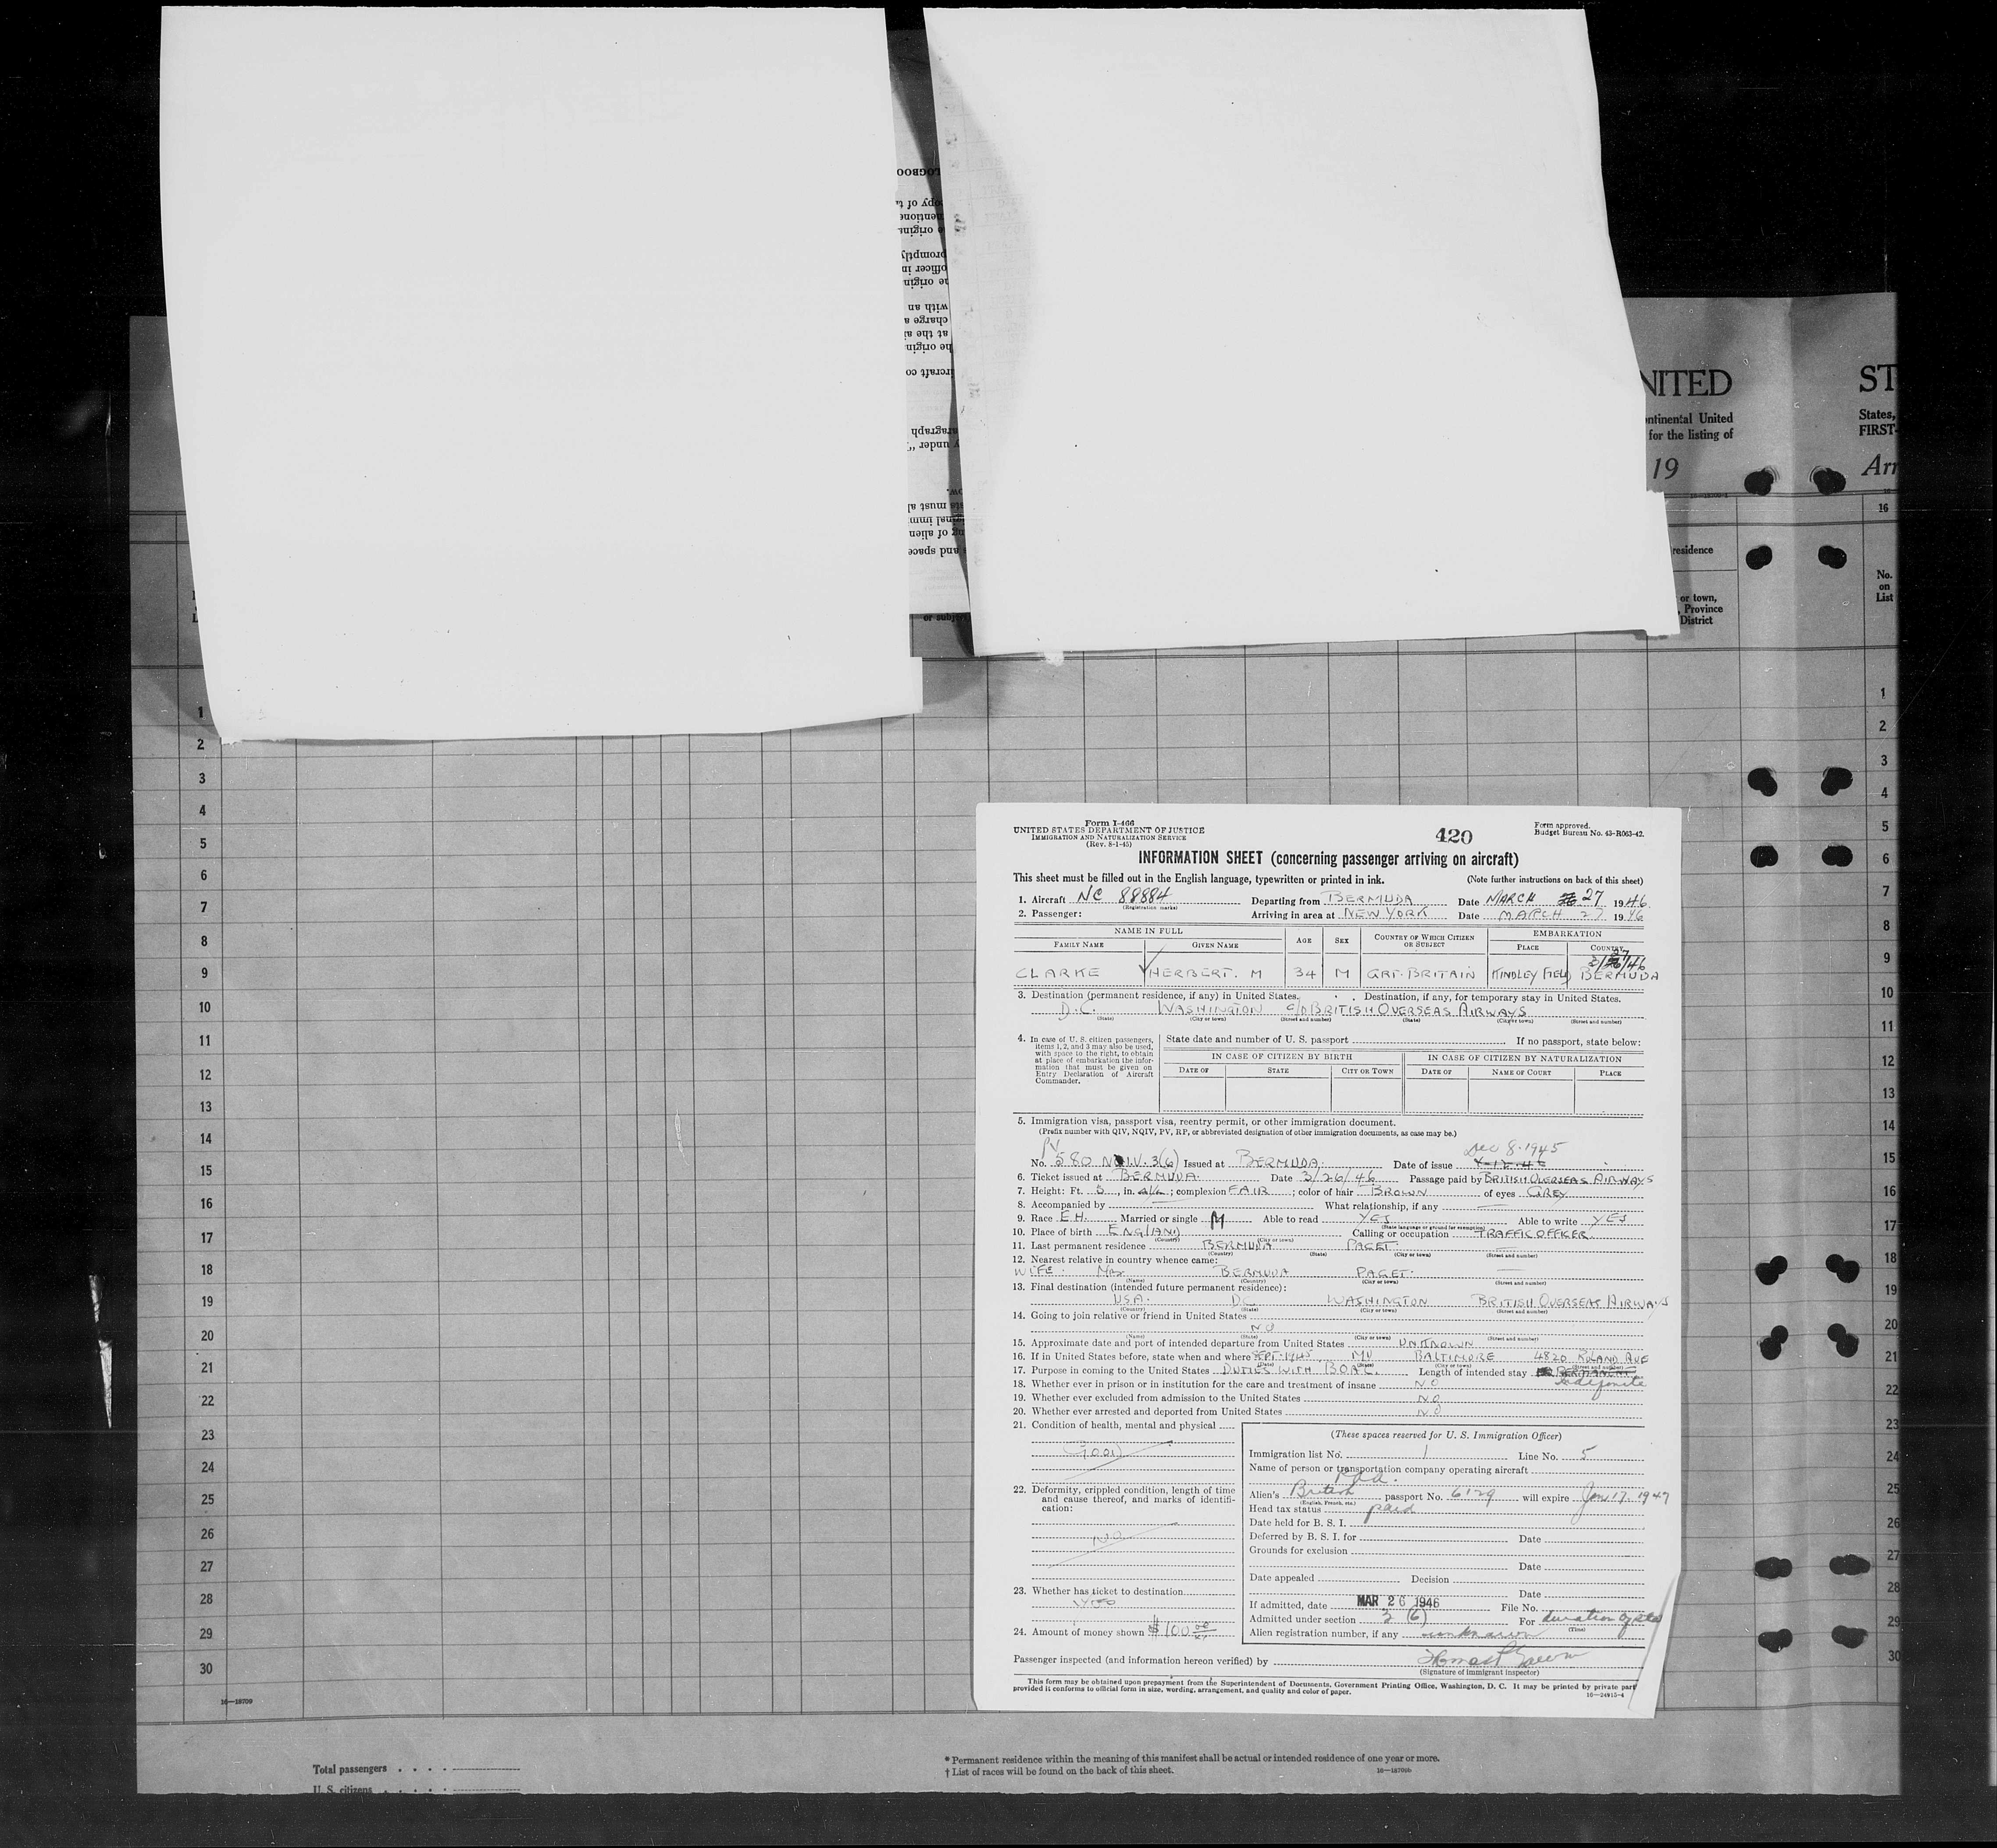 LOGBOO
opy of t
mentione
e origin
promptly
officer in
e origin
with an
charge a
at the ai
he origin
ircraft co
aragraph
y under "
ow.
ste must al
inal immi
g of alien
s and space
or subje
NITED
ontinental United
for the listing of
19
16—18709-1
residence
or town,
Province
District
ST
States,
FIRST-
Arr
16
No.
on
List
1
2
3
4
5
6
7
8
9
10
11
12
13
14
15
16
17
18
19
20
21
22
23
24
25
26
27
28
29
30
16—18709
Form I-466
UNITED STATES DEPARTMENT OF JUSTICE
IMMIGRATION AND NATURALIZATION SERVICE
(Rev. 8-1-45)
420
Form approved.
Budget Bureau No. 43-R063-42.
INFORMATION SHEET (concerning passenger arriving on aircraft)
This sheet must be filled out in the English language, typewritten or printed in ink. (Note further instructions on back of this sheet)
1. Aircraft NC 88884 Departing from BERMUDA Date MARCH 27 1946
(Registration marks)
2. Passenger: Arriving in area at NEW YORK Date MARCH 27 1946
NAME IN FULL AGE SEX COUNTRY OF WHICH CITIZEN OR SUBJECT EMBARKATION
FAMILY NAME GIVEN NAME PLACE COUNTRY
CLARKE HERBERT. M 34 M GRT. BRITAIN KINDLEY FIELD BERMUDA
3. Destination (permanent residence, if any) in United States. Destination, if any, for temporary stay in United States.
D.C. WASHINGTON C/O BRITISH OVERSEAS AIRWAYS
(State) (City or town) (Street and number) (State) (City or town) (Street and number)
4. In case of U. S. citizen passengers, items 1, 2, and 3 may also be used, with space to the right, to obtain at place of embarkation the information that must be given on Entry Declaration of Aircraft Commander.
State date and number of U. S. passport If no passport, state below:
IN CASE OF CITIZEN BY BIRTH IN CASE OF CITIZEN BY NATURALIZATION
DATE OF STATE CITY OR TOWN DATE OF NAME OF COURT PLACE
5. Immigration visa, passport visa, reentry permit, or other immigration document.
(Prefix number with QIV, NQIV, PV, RP, or abbreviated designation of other immigration documents, as case may be.)
PV Dec 8-1945
No. 580 3(6) Issued at BERMUDA. Date of issue
6. Ticket issued at BERMUDA. Date 3/26/46 Passage paid by BRITISH OVERSEAS AIRWAYS
7. Height: Ft. in. ; complexion FAIR ; color of hair BROWN of eyes GREY
8. Accompanied by What relationship, if any
9. Race EH. Married or single M Able to read YES Able to write YES
(State language or ground for exemption)
10. Place of birth ENGLAND Calling or occupation TRAFFIC OFFICER.
(Country) (City or town)
11. Last permanent residence BERMUDA PAGET.
(Country) (State) (City or town) (Street and number)
12. Nearest relative in country whence came:
WIFE. Mrs BERMUDA PAGET.
(Name) (Country) (City or town) (Street and number)
13. Final destination (intended future permanent residence):
USA. DC WASHINGTON BRITISH OVERSEAS AIRWAYS
(Country) (State) (City or town) (Street and number)
14. Going to join relative or friend in United States
NO
(Name) (State) (City or town) (Street and number)
15. Approximate date and port of intended departure from United States UNKNOWN
16. If in United States before, state when and where SEPT-1945 MD BALTIMORE 4820 ROLAND AVE
(Date) (State) (City or town) (Street and number)
17. Purpose in coming to the United States DUTIES WITH BOAC. Length of intended stay PERMANENT
indefinite
18. Whether ever in prison or in institution for the care and treatment of insane NO
19. Whether ever excluded from admission to the United States NO
20. Whether ever arrested and deported from United States NO
21. Condition of health, mental and physical
GOOD
22. Deformity, crippled condition, length of time and cause thereof, and marks of identification:
NO
23. Whether has ticket to destination
YES
24. Amount of money shown $100 00/xx
(These spaces reserved for U. S. Immigration Officer)
Immigration list No. 1 Line No. 5
Name of person or transportation company operating aircraft
PAA.
Alien's British passport No. 6129 will expire Jan 17. 1947
(English, French, etc.)
Head tax status paid
Date held for B. S. I.
Deferred by B. S. I. for Date
Grounds for exclusion
Date
Date appealed Decision
Date
If admitted, date MAR 26 1946 File No.
Admitted under section 3 (6) For duration of sta
(Time)
Alien registration number, if any unknown
Passenger inspected (and information hereon verified) by
(Signature of immigrant inspector)
This form may be obtained upon prepayment from the Superintendent of Documents, Government Printing Office, Washington, D. C. It may be printed by private part
provided it conforms to official form in size, wording, arrangement, and quality and color of paper. 16—24915-4
* Permanent residence within the meaning of this manifest shall be actual or intended residence of one year or more.
† List of races will be found on the back of this sheet. 16—18709b
Total passengers . . . .
U. S. citizens . . . . .